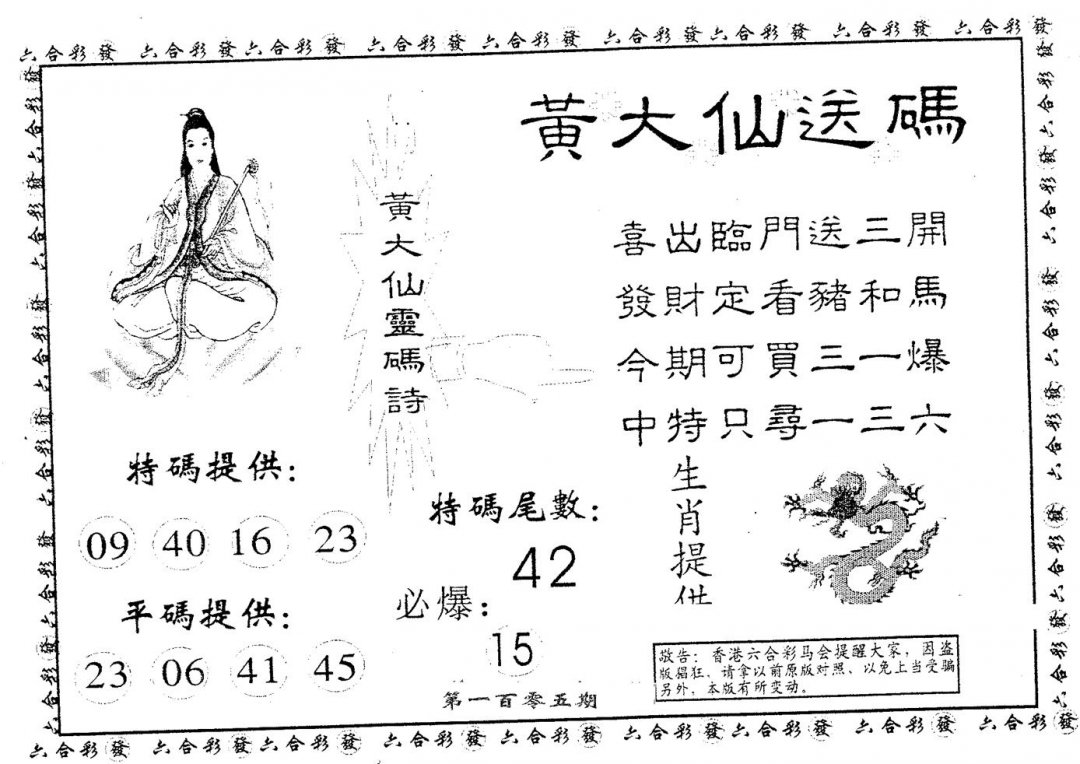 六合彩發 六合彩發 六合彩發 六合彩發 六合彩發 六合彩發 六合彩發 六合彩發 六合彩發
黃大仙送碼
黃大仙靈碼詩
喜出臨門送三開
發財定看豬和馬
今期可買三一爆
中特只尋一三六
特碼提供：
09 40 16 23
平碼提供：
23 06 41 45
特碼尾數：
42
必爆：
15
生肖提供
敬告：香港六合彩马会提醒大家，因盗
版猖狂，请拿以前原版对照，以免上当受骗
另外，本版有所变动。
第一百零五期
六合彩發 六合彩發 六合彩發 六合彩發 六合彩發 六合彩發 六合彩發 六合彩發 六合彩發